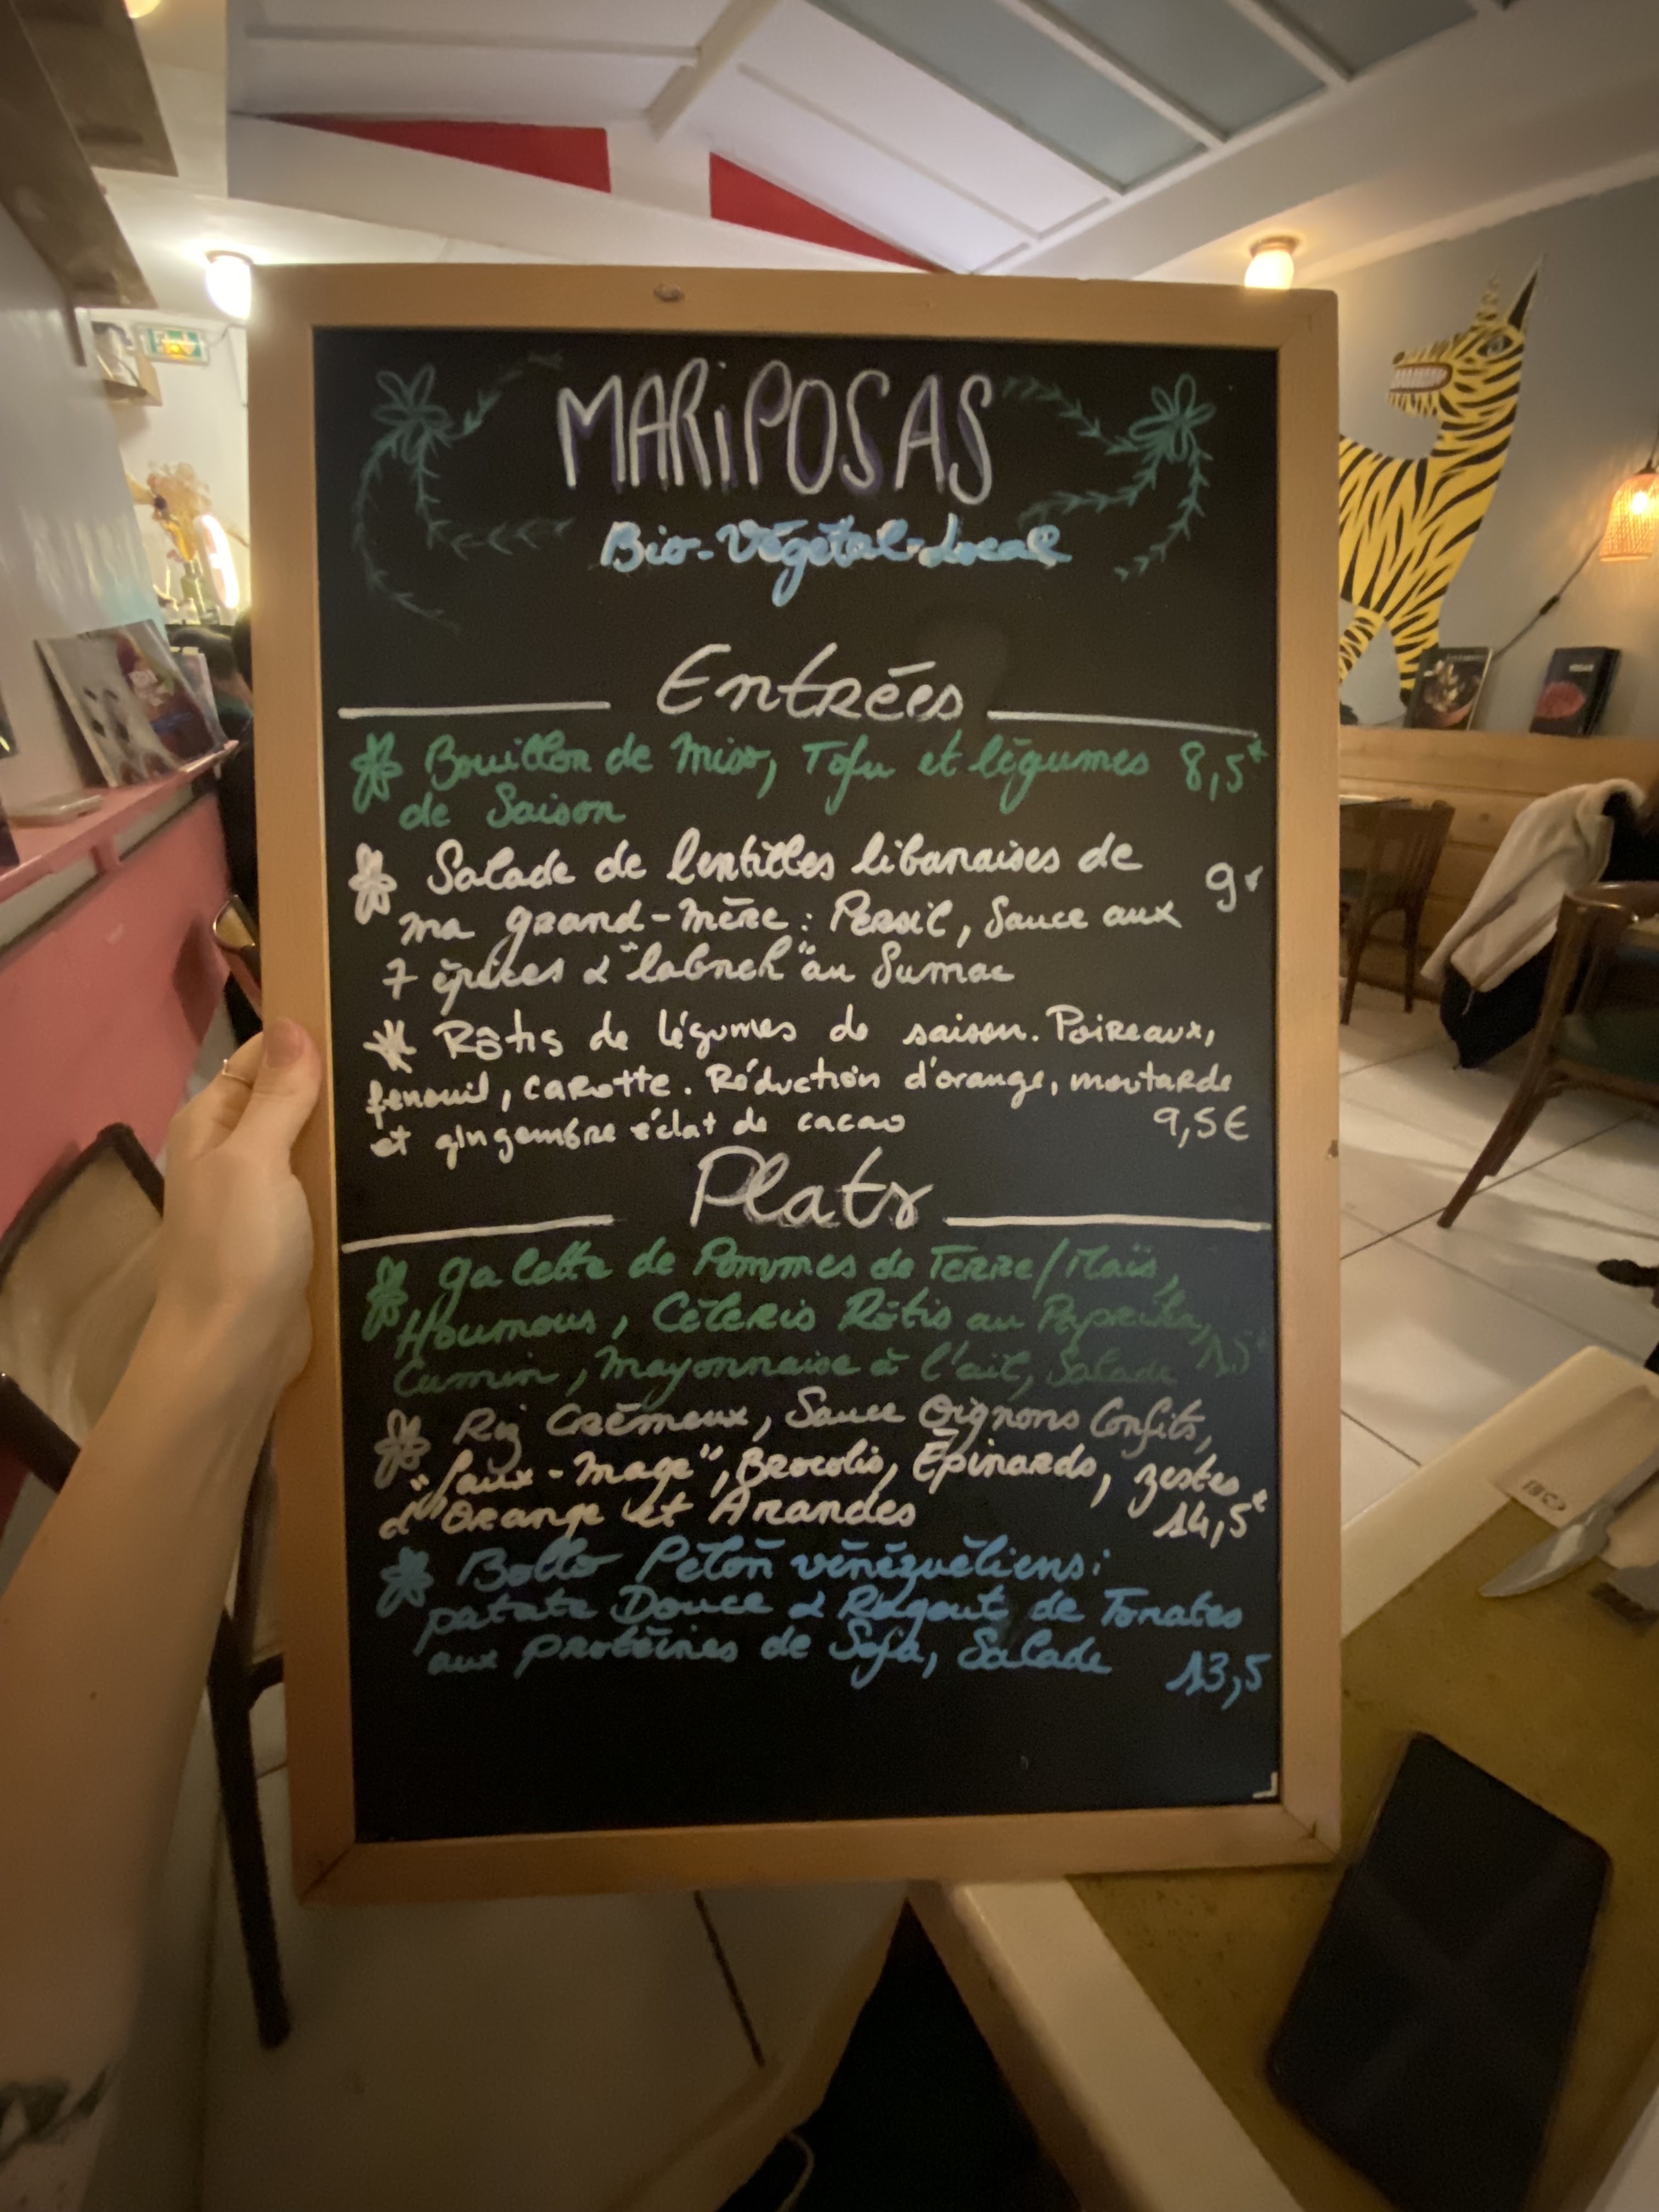 MARiPOSAS
Bio-Végétal-Local
Entrées
Bouillon de Miso, Tofu et légumes 8,5€
de Saison
Salade de lentilles libanaises de
ma grand-mère : Persil, Sauce aux 9€
7 épices & "labneh" au Sumac
Rôtis de légumes de saison. Poireaux,
fenouil, carotte. Réduction d'orange, moutarde
et gingembre éclat de cacao 9,5€
Plats
galette de Pommes de Terre/Maïs,
Houmous, Céleris Rôtis au Paprika,
Cumin, Mayonnaise à l'ail, Salade
Riz Crémeux, Sauce Oignons Confits,
"faux-mage", Brocolis, Épinards, zestes
d'Orange et Amandes 14,5€
Bollo Pelón vénézuéliens :
patate Douce & Ragout de Tomates
aux protéines de Soja, Salade 13,5